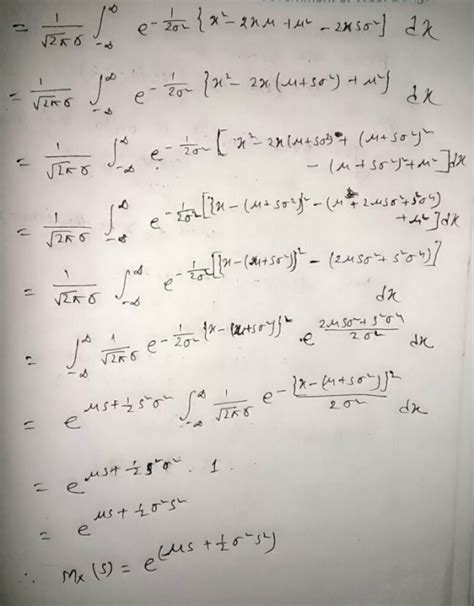 = 1/√2π σ ∫_{-∞}^{∞} e^{-1/2σ² {x² - 2xμ + μ² - 2xsσ²}} dx
= 1/√2π σ ∫_{-∞}^{∞} e^{-1/2σ² {x² - 2x(μ+sσ²) + μ²}} dx
= 1/√2π σ ∫_{-∞}^{∞} e^{-1/2σ² [x² - 2x(μ+sσ²) + (μ+sσ²)²
- (μ+sσ²)² + μ²]} dx
= 1/√2π σ ∫_{-∞}^{∞} e^{-1/2σ² [{x - (μ+sσ²)}² - (μ² + 2μsσ² + s²σ⁴)
+ μ²]} dx
= 1/√2π σ ∫_{-∞}^{∞} e^{-1/2σ² [{x - (μ+sσ²)}² - (2μsσ² + s²σ⁴)]}
dx
= ∫_{-∞}^{∞} 1/√2π σ e^{-1/2σ² {x - (μ+sσ²)}²} . e^{2μsσ² + s²σ⁴ / 2σ²} dx
= e^{μs + ½ s²σ²} ∫_{-∞}^{∞} 1/√2π σ e^{- {x - (μ+sσ²)}² / 2σ²} dx
= e^{μs + ½ s²σ²} . 1.
= e^{μs + ½ σ²s²}
∴ Mx (s) = e^{(μs + ½ σ²s²)}